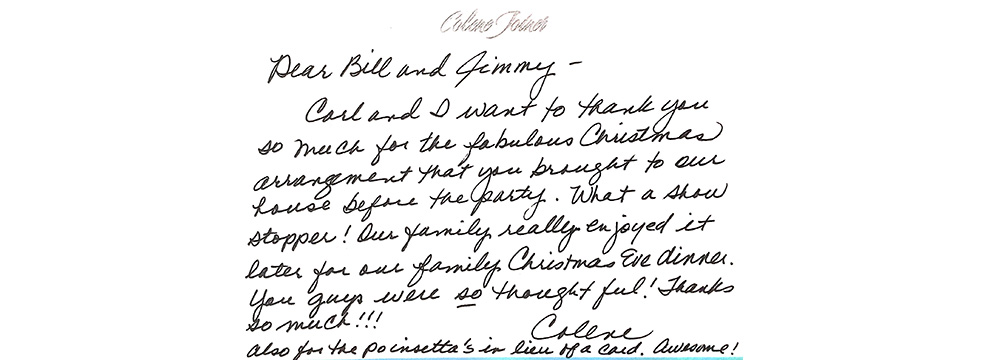 Colene Joiner
Dear Bill and Jimmy -
Carl and I want to thank you
so much for the fabulous Christmas
arrangement that you brought to our
house before the party. What a show
stopper! Our family really enjoyed it
later for our family Christmas Eve dinner.
You guys were so thoughtful! Thanks
so much!!!
Colene
also for the poinsetta's in lieu of a card. Awesome!